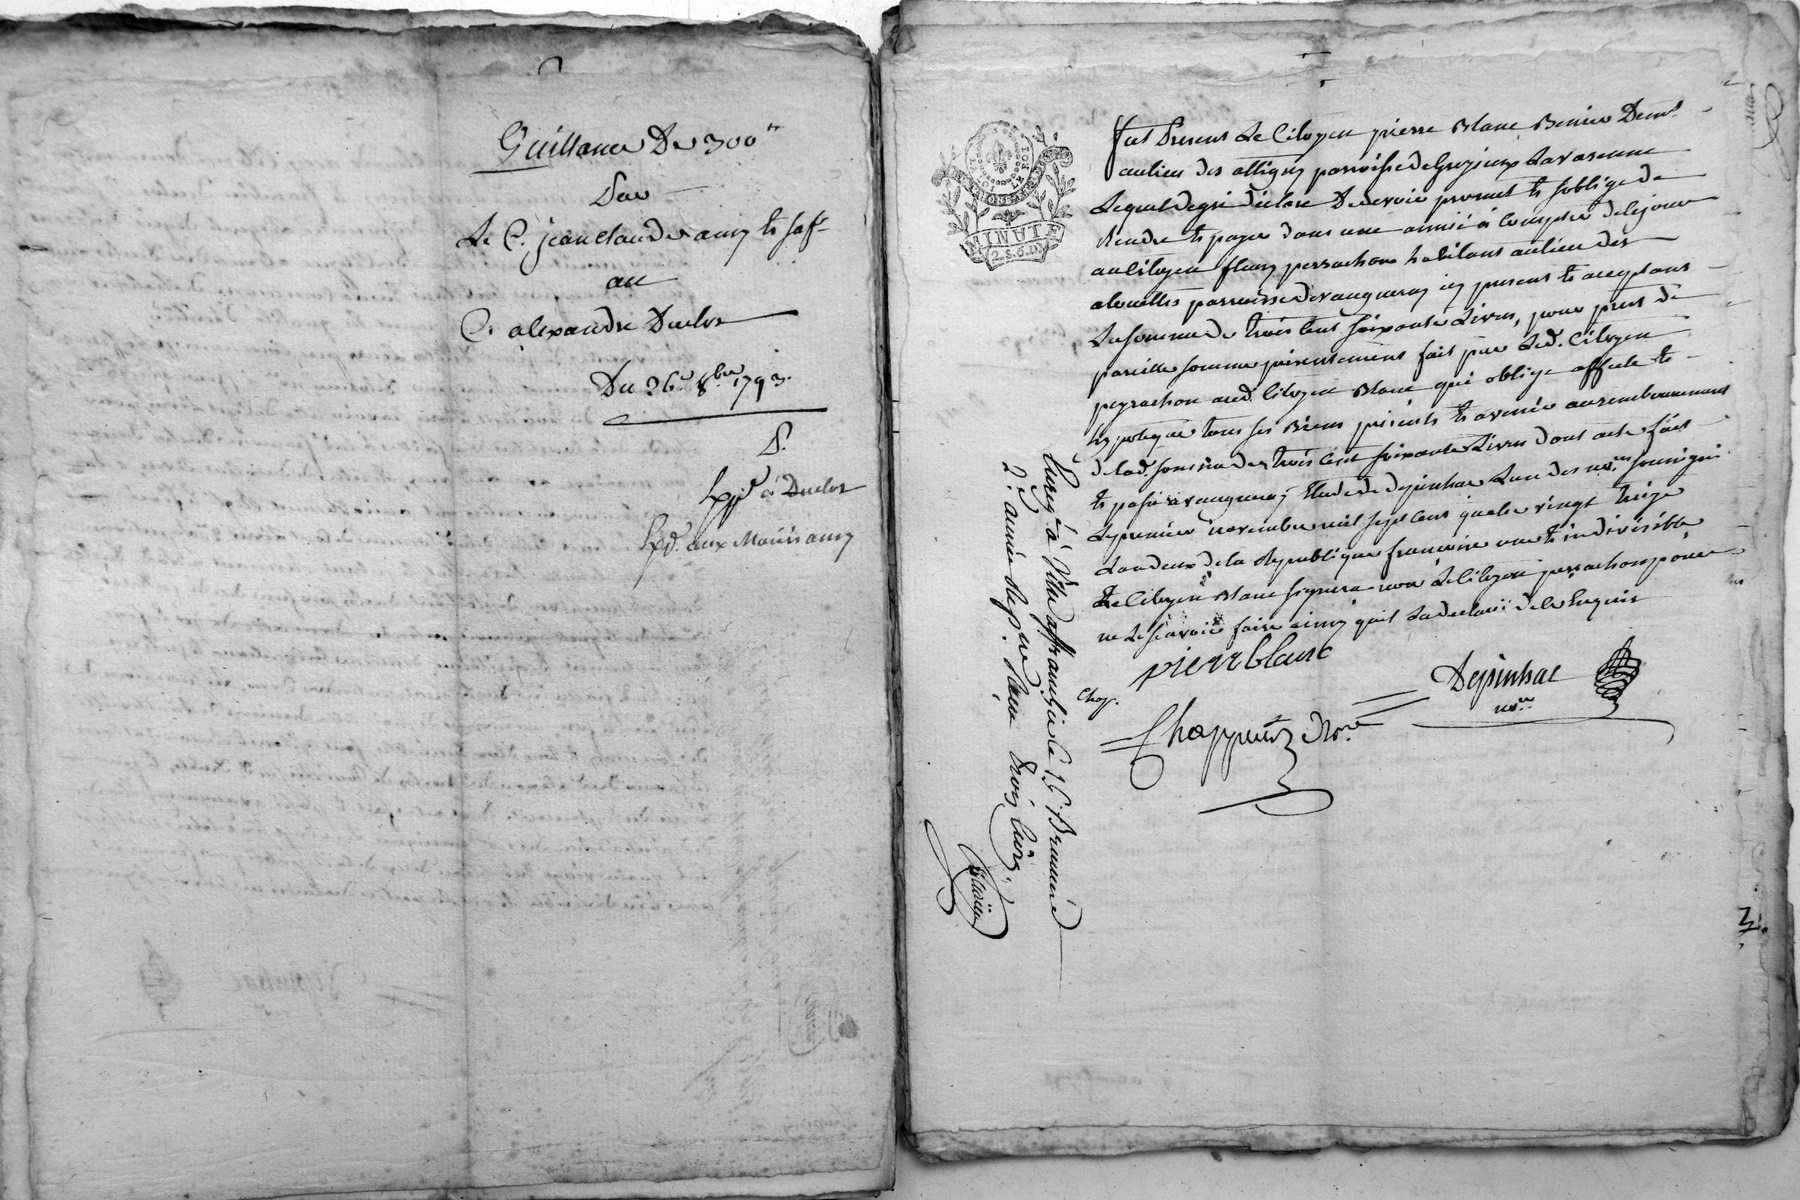 Quittance De 300ᵗᵗ
Par
Le C. jean Claude amy & sa fe
au
C. alexandre Duclos
Du 26e 8bre 1793.
P.
Exp. à Duclos
Exp. aux Mariés amy
LA LOI LE ROI
2.S.6.D
fut Present Le Citoyen pierre Blanc Demt
au lieu des attignes parroisse de Grezieux La varenne
Lequel de gré déclare Devoir promet & soblige de
Rendre & payer dans une année à compter de ce jour
au Citoyen fleury perrachon habitant au lieu des
alouettes parroisse de vaugneray icy present & acceptant
La somme de trois Cent soixante Livres, pour prest de
pareille somme presentement fait par Led. Citoyen
peyrachon aud. Citoyen Blanc qui oblige affecte &
hypoteque tous ses Biens presents & avenir au remboursement
de lad. somme de trois Cent soixante Livres dont acte fait
& passé a vaugneray Etude de Depinhac L'un des nores soussignés
Le premier novembre mil sept cent quatre vingt treize
L'an deux de la Republique francoise une & indivisible
Le Citoyen Blanc signera non Le Citoyen perrachon pour
ne Le sçavoir faire ainsy qu'il La declaré de ce Enquis
pierr blanc
Depinhac
nore
Chap.
Chappuis Nore
Enreg. à Ville affranchie le 15 Brumaire
2e année Repub. Reçu trois livres.